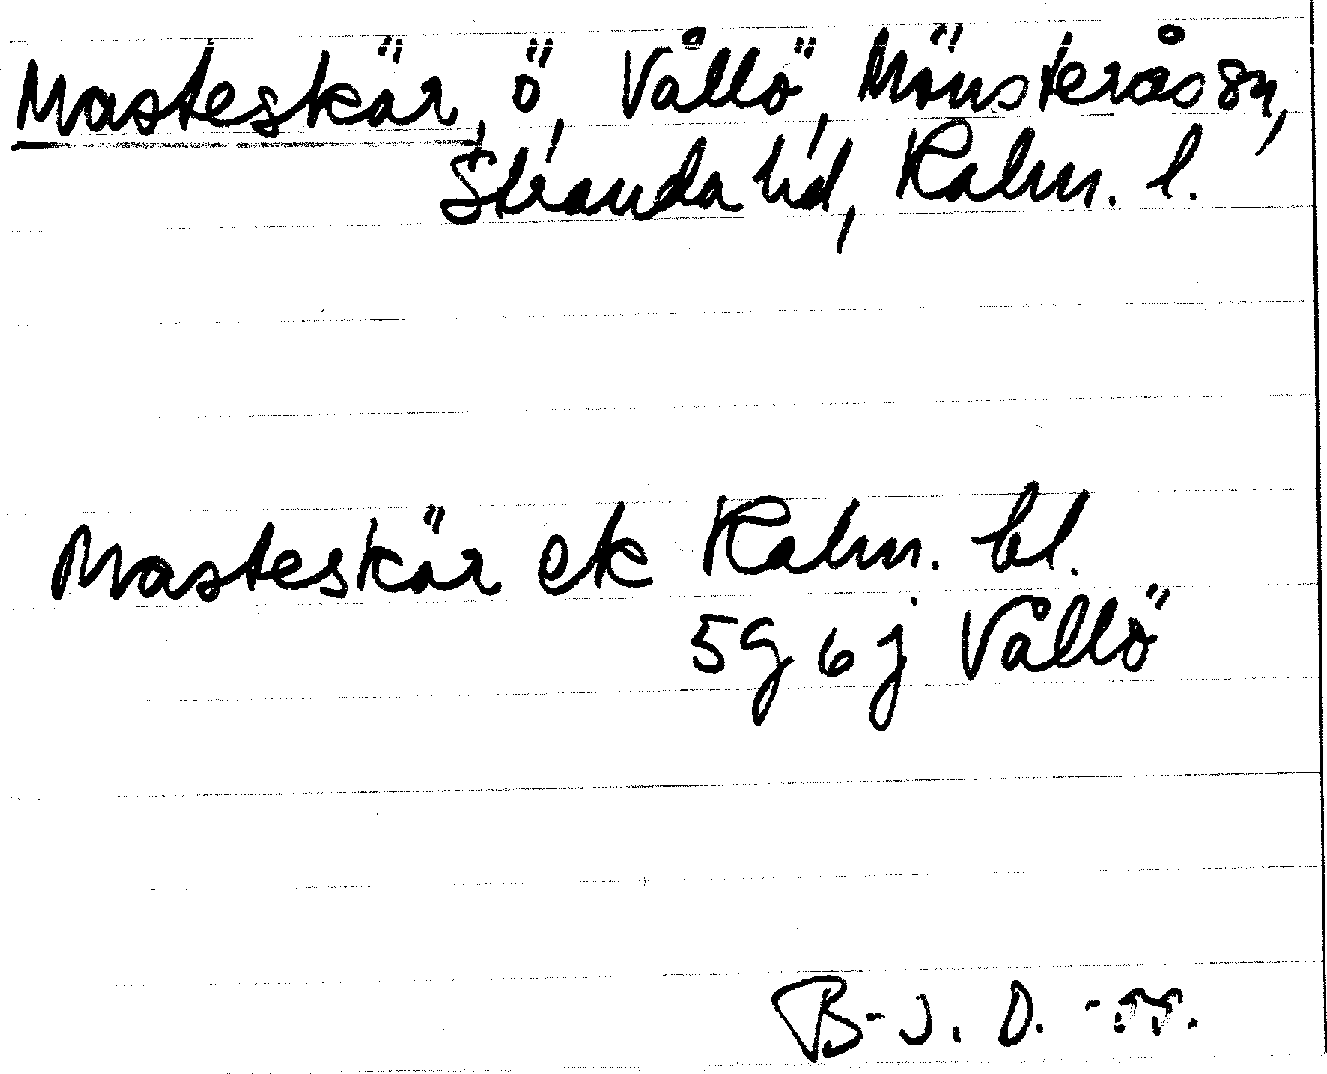 Masteskär, ö, Vållö, Mönsterås sn,
Stranda hd, Kalm. l.
Masteskär ek Kalm. bl.
5g6j Vållö
B-J. O. -55.